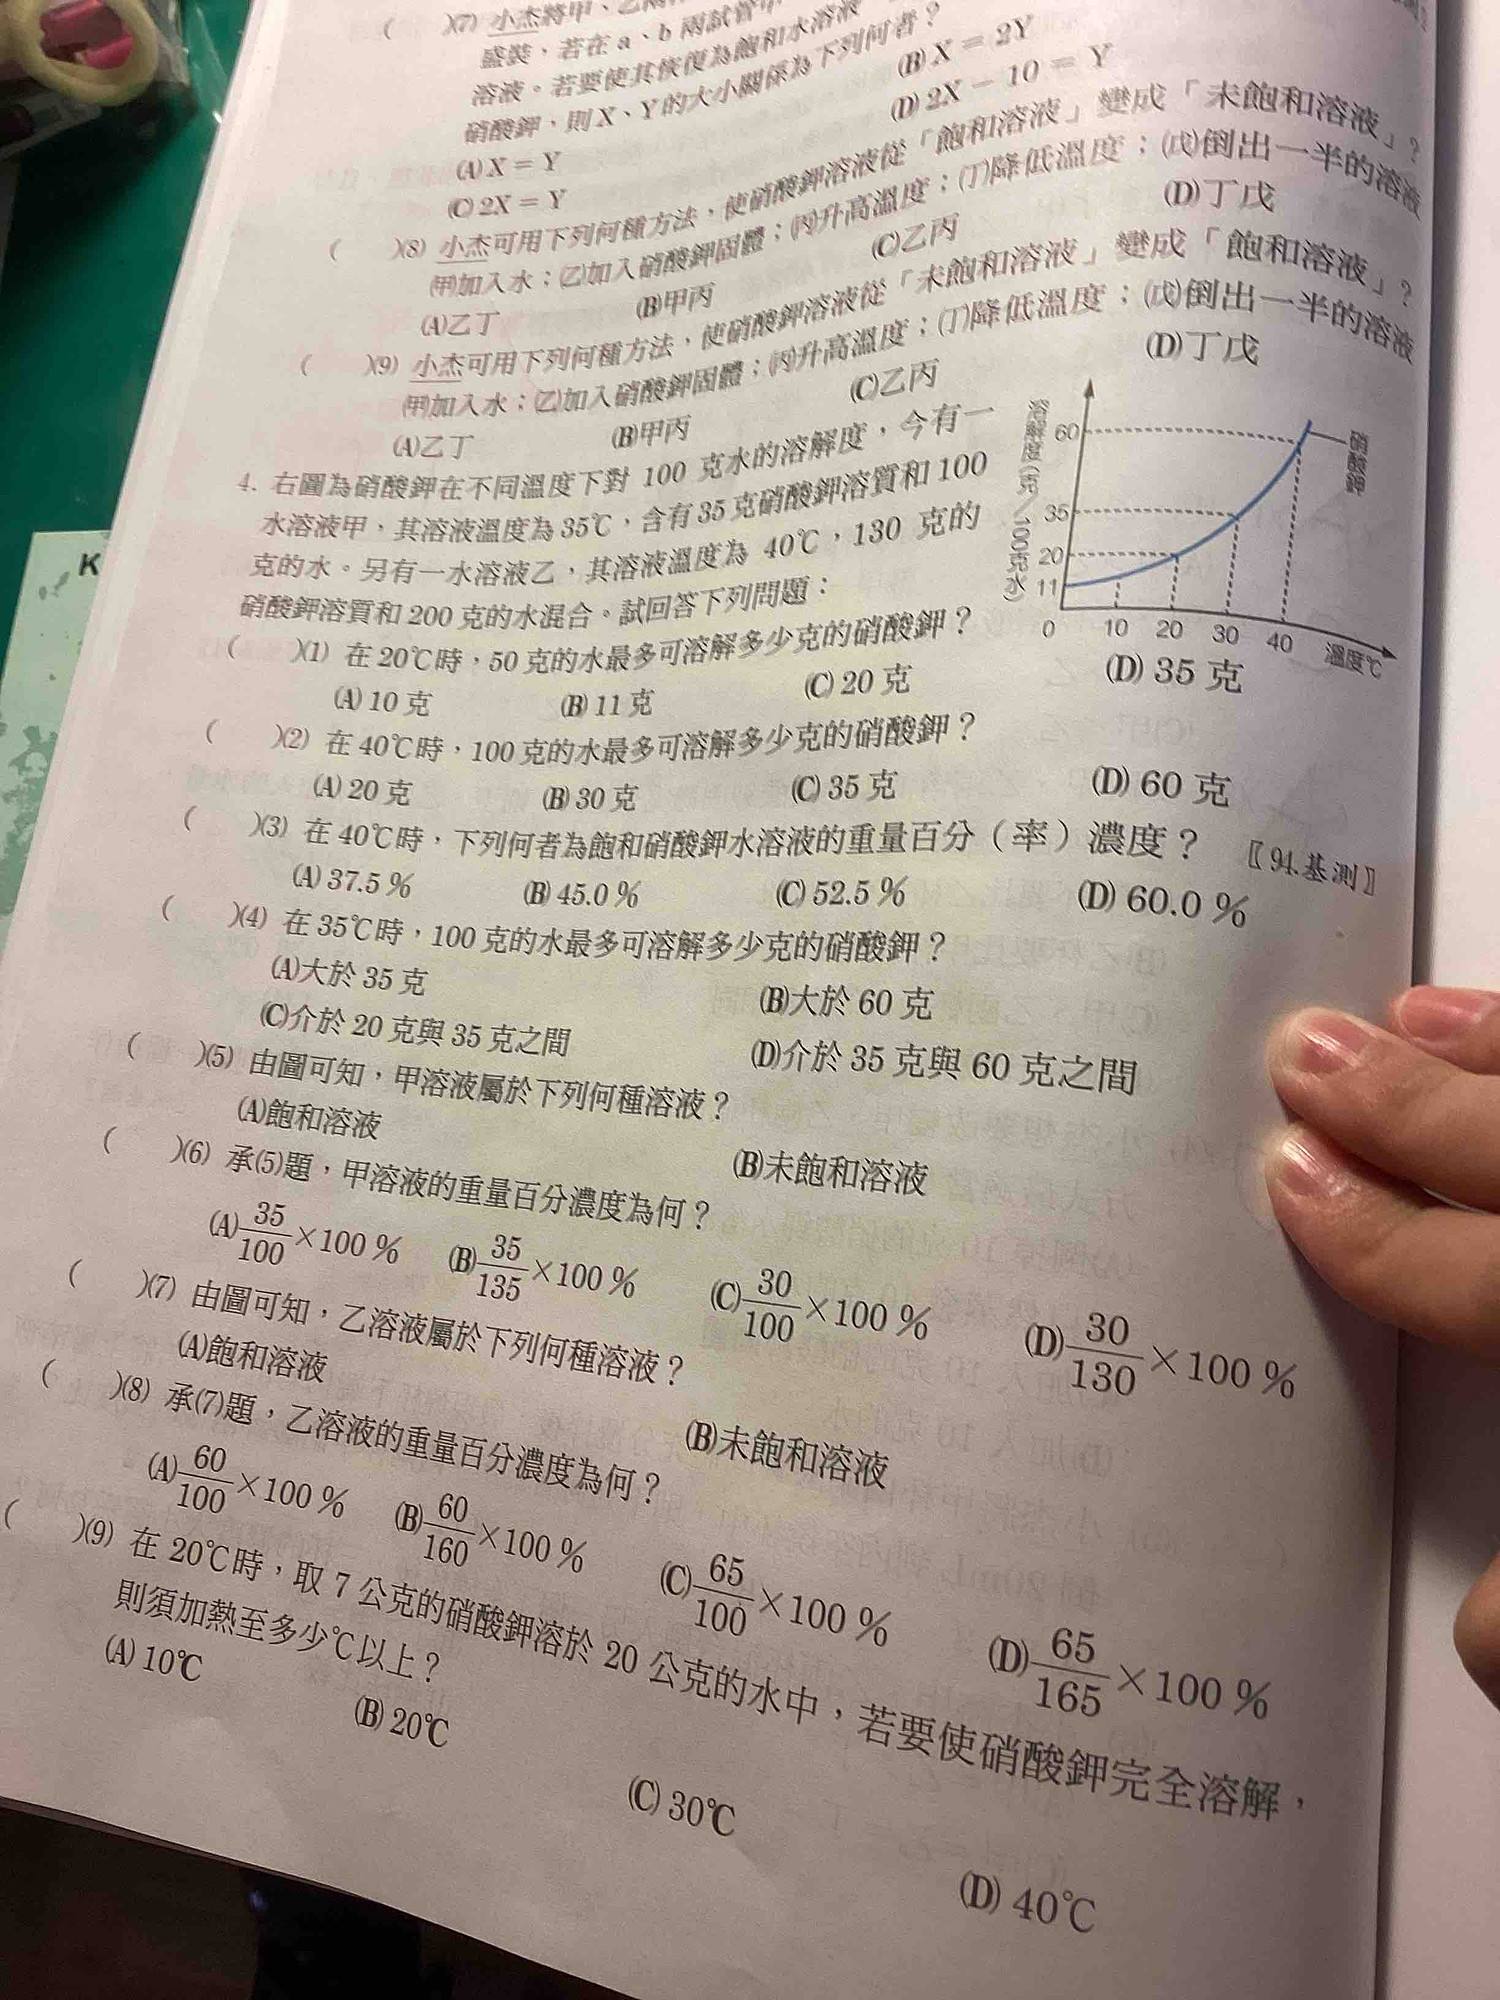 ( )(7) 小杰將甲、乙兩
盛裝,若在 a、b 兩試管中
溶液。若要使其恢復為飽和水溶液
硝酸鉀,則 X、Y 的大小關係為下列何者?
(A) X = Y (B) X = 2Y
(C) 2X = Y (D) 2X − 10 = Y
( )(8) 小杰可用下列何種方法,使硝酸鉀溶液從「飽和溶液」變成「未飽和溶液」?
(甲)加入水;(乙)加入硝酸鉀固體;(丙)升高溫度;(丁)降低溫度;(戊)倒出一半的溶液
(A)乙丁 (B)甲丙 (C)乙丙 (D)丁戊
( )(9) 小杰可用下列何種方法,使硝酸鉀溶液從「未飽和溶液」變成「飽和溶液」?
(甲)加入水;(乙)加入硝酸鉀固體;(丙)升高溫度;(丁)降低溫度;(戊)倒出一半的溶液
(A)乙丁 (B)甲丙 (C)乙丙 (D)丁戊
4. 右圖為硝酸鉀在不同溫度下對 100 克水的溶解度,今有一
水溶液甲,其溶液溫度為 35℃,含有 35 克硝酸鉀溶質和 100
克的水。另有一水溶液乙,其溶液溫度為 40℃,130 克的
硝酸鉀溶質和 200 克的水混合。試回答下列問題:
溶解度(克/100克水)
60
35
20
11
0 10 20 30 40 溫度℃
硝酸鉀
( )(1) 在 20℃時,50 克的水最多可溶解多少克的硝酸鉀?
(A) 10 克 (B) 11 克 (C) 20 克 (D) 35 克
( )(2) 在 40℃時,100 克的水最多可溶解多少克的硝酸鉀?
(A) 20 克 (B) 30 克 (C) 35 克 (D) 60 克
( )(3) 在 40℃時,下列何者為飽和硝酸鉀水溶液的重量百分(率)濃度? 〖94.基測〗
(A) 37.5 % (B) 45.0 % (C) 52.5 % (D) 60.0 %
( )(4) 在 35℃時,100 克的水最多可溶解多少克的硝酸鉀?
(A)大於 35 克 (B)大於 60 克
(C)介於 20 克與 35 克之間 (D)介於 35 克與 60 克之間
( )(5) 由圖可知,甲溶液屬於下列何種溶液?
(A)飽和溶液 (B)未飽和溶液
( )(6) 承(5)題,甲溶液的重量百分濃度為何?
(A) 35/100 × 100 % (B) 35/135 × 100 % (C) 30/100 × 100 % (D) 30/130 × 100 %
( )(7) 由圖可知,乙溶液屬於下列何種溶液?
(A)飽和溶液 (B)未飽和溶液
( )(8) 承(7)題,乙溶液的重量百分濃度為何?
(A) 60/100 × 100 % (B) 60/160 × 100 % (C) 65/100 × 100 % (D) 65/165 × 100 %
( )(9) 在 20℃時,取 7 公克的硝酸鉀溶於 20 公克的水中,若要使硝酸鉀完全溶解,
則須加熱至多少℃以上?
(A) 10℃ (B) 20℃ (C) 30℃ (D) 40℃
K